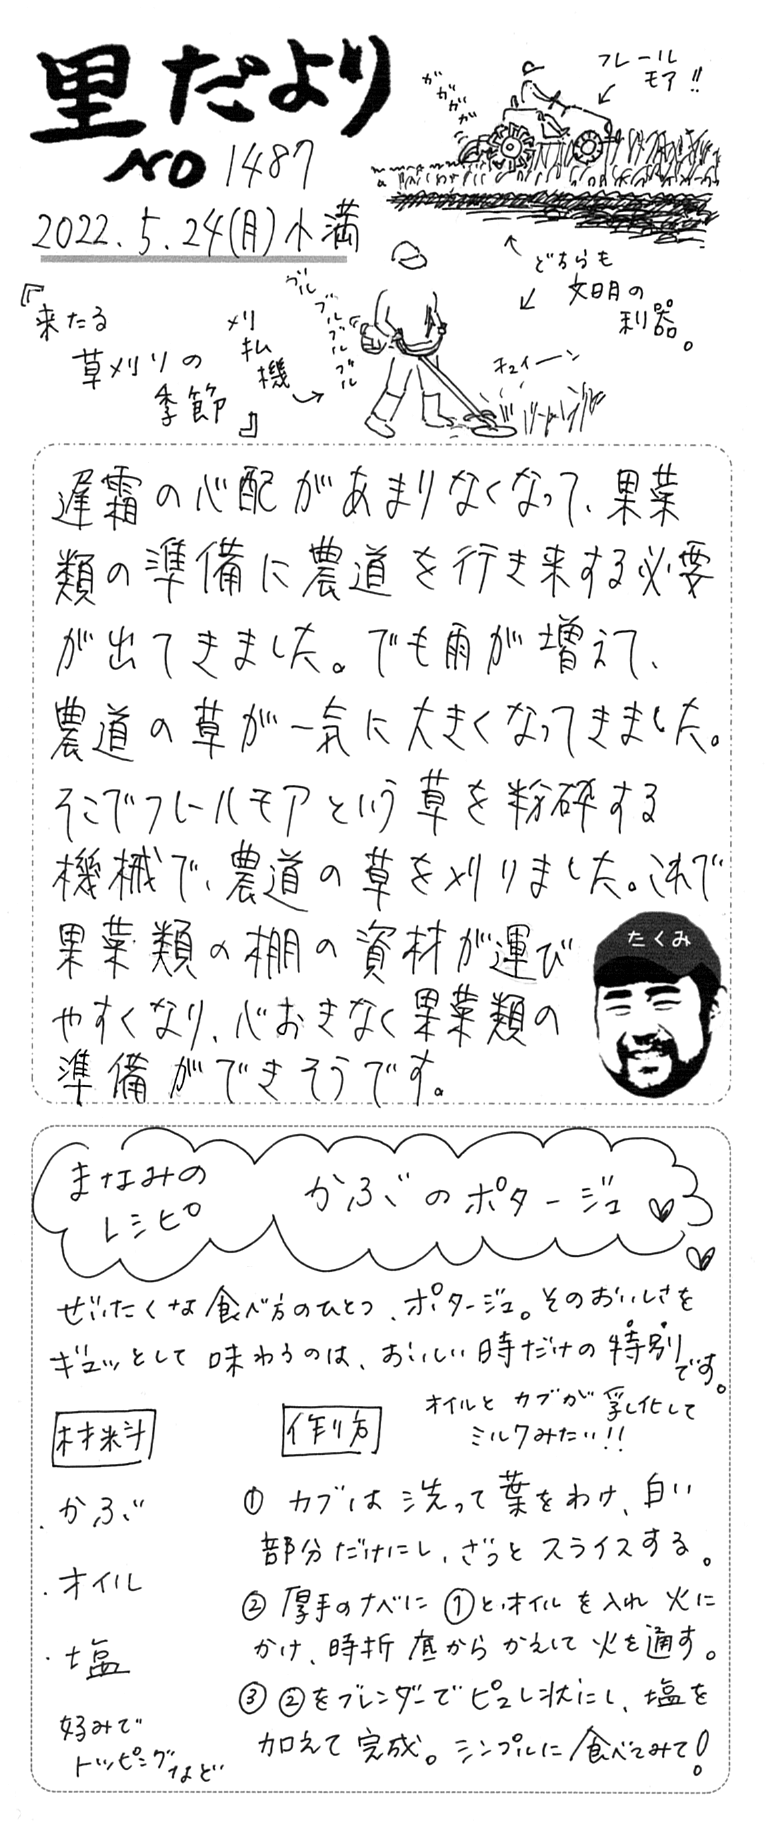 里だより
NO 1487
2022.5.24(月)小満
ガガガガ
フレール
モア!!
↑どちらも
文明の
利器。
『来たる
草刈りの
季節』
刈
払
機
ブル
ブル
ブル
ブル
チュイーン
遅霜の心配があまりなくなって、果菜
類の準備に農道を行き来する必要
が出てきました。でも雨が増えて、
農道の草が一気に大きくなってきました。
そこでフレールモアという草を粉砕する
機械で、農道の草を刈りました。これで
果菜類の棚の資材が運び
やすくなり、心おきなく果菜類の
準備ができそうです。
たくみ
まなみの
レシピ
かぶのポタージュ
ぜいたくな食べ方のひとつ、ポタージュ。そのおいしさを
ギュッとして味わうのは、おいしい時だけの特別です。
オイルとカブが乳化して
ミルクみたい!!
材料
・かぶ
・オイル
・塩
好みで
トッピングなど
作り方
① カブは洗って葉をわけ、白い
部分だけにし、ざっとスライスする。
② 厚手のナベに①とオイルを入れ火に
かけ、時折底からかえして火を通す。
③ ②をブレンダーでピュレ状にし、塩を
加えて完成。シンプルに食べてみて!